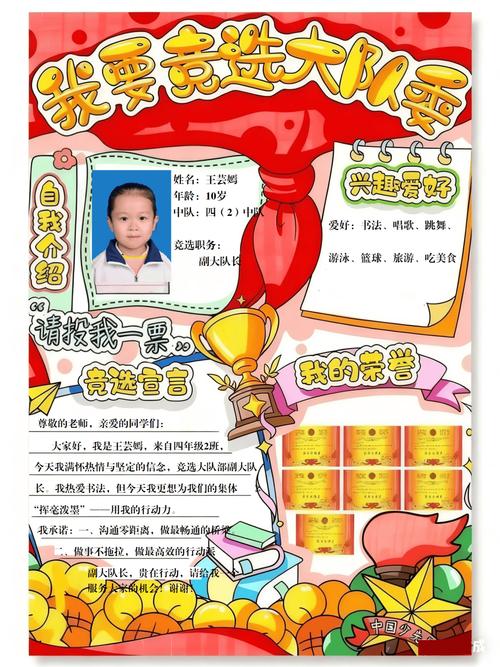 我要竞选大队委
自我介绍
姓名：王芸嫣
年龄：10岁
中队：四（2）中队
竞选职务：
副大队长
兴趣爱好
爱好：书法、唱歌、跳舞、
游泳、篮球、旅游、吃美食
“请投我一票”
竞选宣言
尊敬的老师，亲爱的同学们：
大家好，我是王芸嫣，来自四年级2班，
今天我满怀热情与坚定的信念，竞选大队部副大队
长。我热爱书法，但今天我更想为我们的集体
“挥毫泼墨”——用我的行动力。
我承诺：一、沟通零距离，做最畅通的桥梁
二、做事不拖拉，做最高效的行动派
副大队长，贵在行动，请给我一个
服务大家的机会！谢谢！
我的荣誉
中国少先